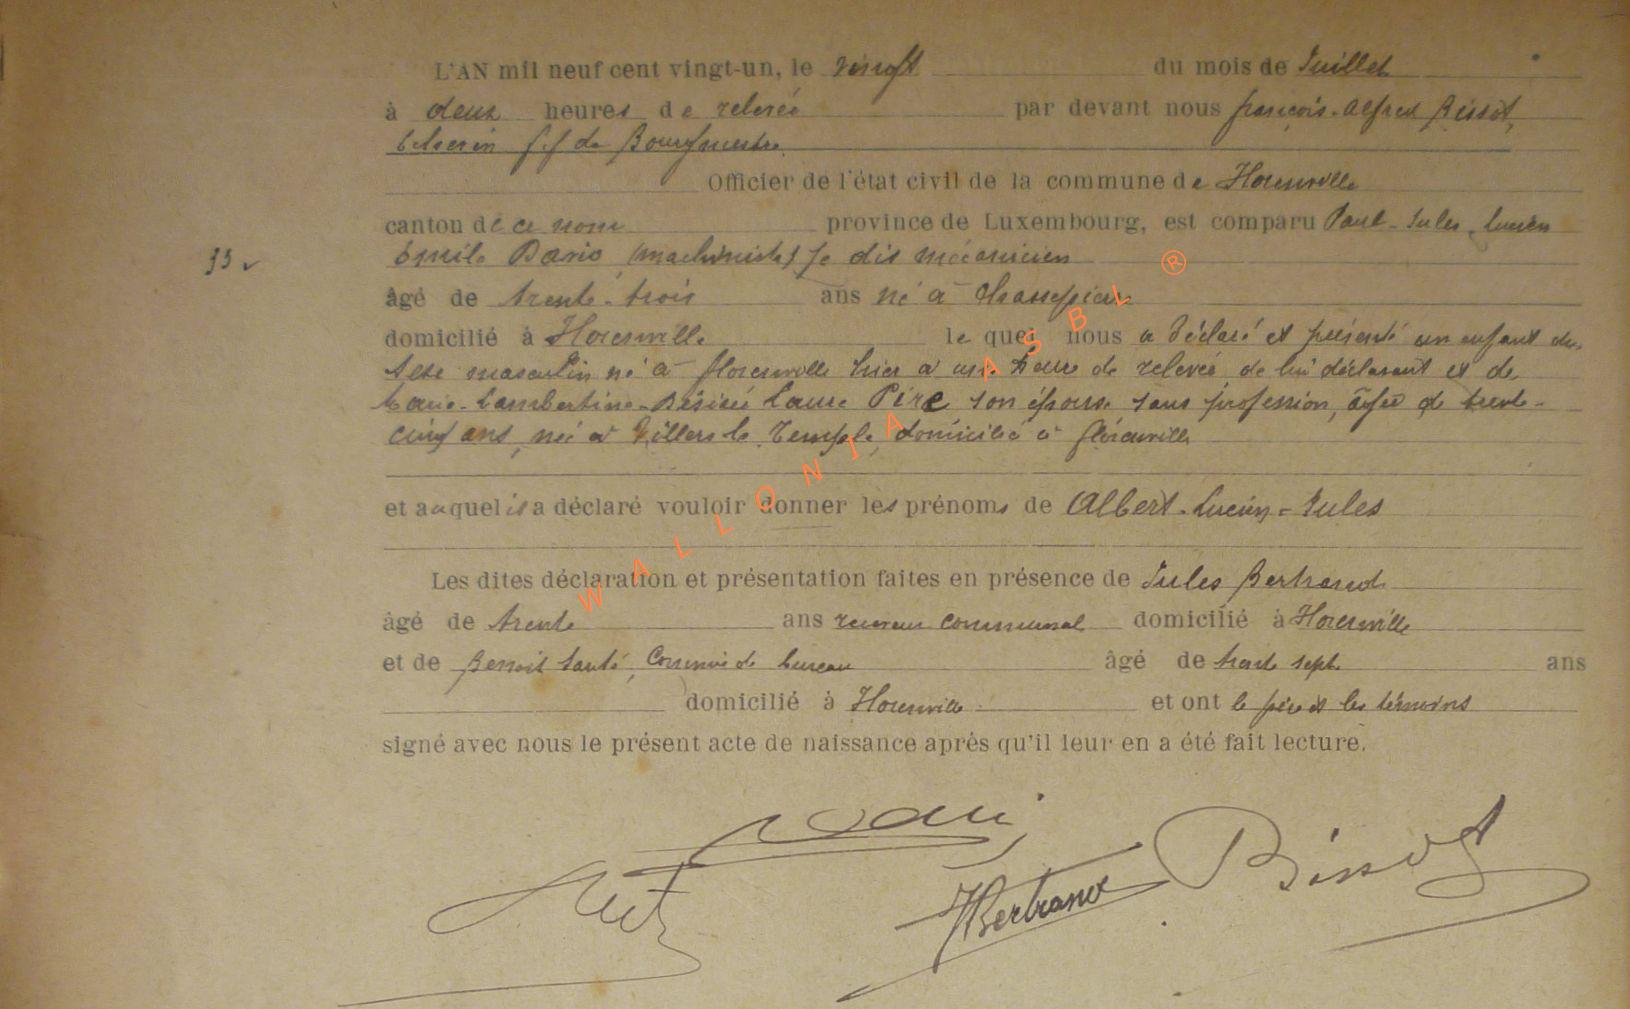 L'AN mil neuf cent vingt-un, le vingt du mois de Juillet
à deux heures de relevée par devant nous françois-Alfred Bissot,
Echevin f.f de Bourgmestre
Officier de l'état civil de la commune de Florenville
canton de ce nom province de Luxembourg, est comparu Paul-Jules-Lucien
33
Emile Davio (machiniste) je dis mécanicien
âgé de trente-trois ans né à Chassepierre
domicilié à Florenville le quel nous a déclaré et présenté un enfant du
sexe masculin né à florenville hier à une heure de relevée de lui déclarant et de
Marie-Lambertine-Désirée Laure Pire son épouse sans profession, âgée de trente-
cinq ans, née à Villers le Temple, domiciliée à florenville
et auquel il a déclaré vouloir donner les prénoms de Albert-Lucien-Jules
Les dites déclaration et présentation faites en présence de Jules Bertrand
âgé de trente ans receveur communal domicilié à Florenville
et de Benoit, Commis de bureau âgé de trente sept ans
domicilié à Florenville et ont le père et les témoins
signé avec nous le présent acte de naissance après qu'il leur en a été fait lecture.
JBertrand Bissot
WALLONIA ASBL ®